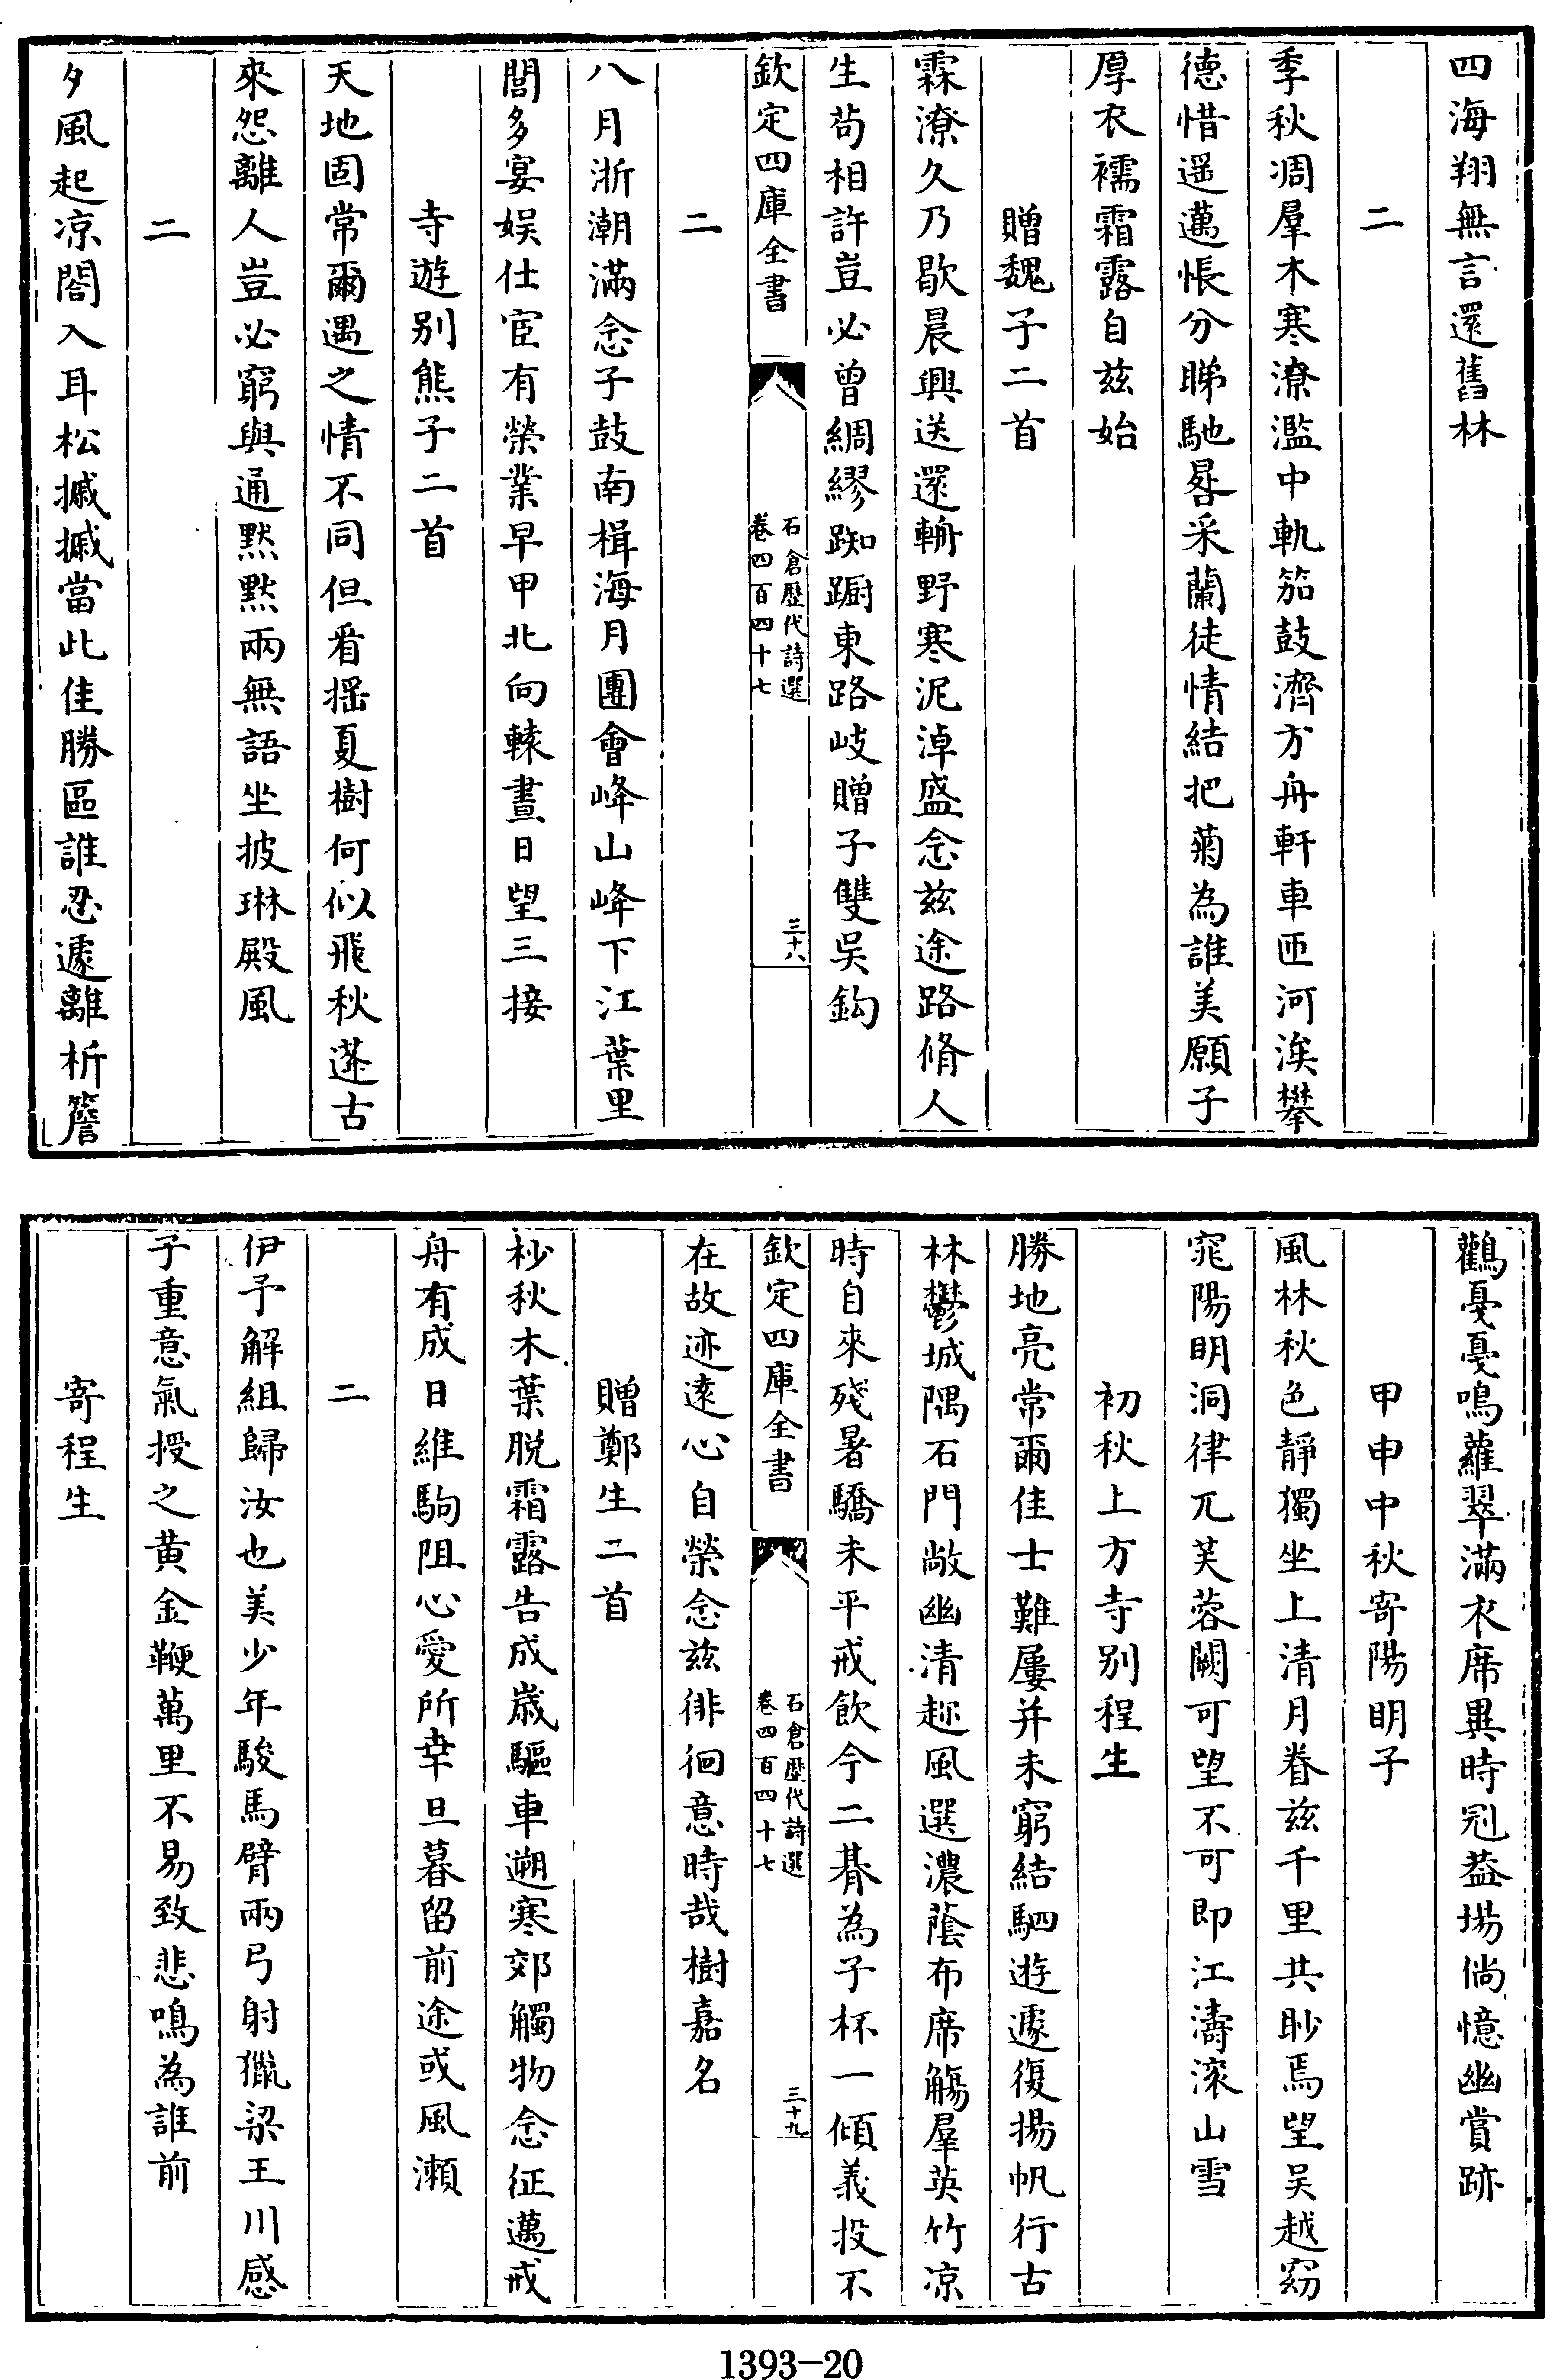 四海翔無言還舊林
二
季秋凋羣木寒潦濫中軌笳鼓濟方舟軒車匝河涘攀
德惜遥邁悵分睇馳晷采蘭徒情結把菊為誰美願子
厚衣襦霜露自兹始
贈魏子二首
霖潦久乃歇晨興送還輈野寒泥淖盛念兹途路脩人
生茍相許豈必曾綢繆踟蹰東路岐贈子雙吳鈎
欽定四庫全書
石倉歷代詩選
卷四百四十七
三十八
二
八月浙潮滿念子鼓南楫海月團會峰山峰下江葉里
閭多宴娯仕宦有榮業早甲北向轅晝日望三接
寺遊别熊子二首
天地固常爾遇之情不同但看揺夏樹何似飛秋蓬古
來怨離人豈必窮與通黙黙兩無語坐披琳殿風
二
夕風起凉閤入耳松摵摵當此佳勝區誰忍遽離析簷
鸛戛戛鳴蘿翠滿衣席異時冠葢場倘憶幽賞跡
甲申中秋寄陽明子
風林秋色靜獨坐上清月眷兹千里共眇焉望吴越窈
窕陽明洞律兀芙蓉闕可望不可即江濤滚山雪
初秋上方寺别程生
勝地亮常爾佳士難屢并未窮結駟遊遽復揚帆行古
林鬱城隅石門敞幽清趂風選濃蔭布席觴羣英竹凉
時自來殘暑驕未平戒飲今二朞為子杯一傾義投不
欽定四庫全書
石倉歷代詩選
卷四百四十七
三十九
在故迹逺心自榮念兹徘徊意時哉樹嘉名
贈鄭生二首
杪秋木葉脱霜露告成嵗驅車遡寒郊觸物念征邁戒
舟有成日維駒阻心愛所幸旦暮留前途或風瀬
二
伊予解組歸汝也美少年駿馬臂兩弓射獵梁王川感
子重意氣授之黄金鞭萬里不易致悲鳴為誰前
寄程生
1393—20